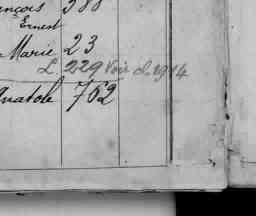 ançois 388
Ernest
Marie 23
L 229 Voir d. 1914
Anatole 762